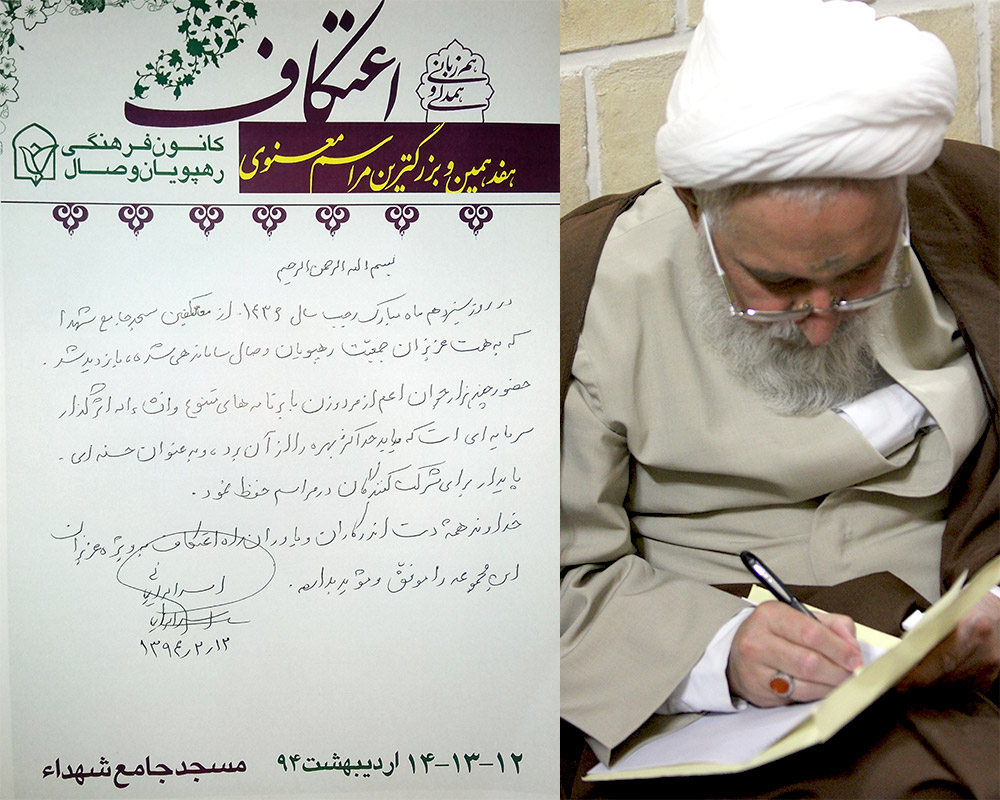 اعتکاف
هم زبانی
همدلی و
کانون فرهنگی
رهپویان وصال
هفدهمین و بزرگترین مراسم معنوی
بسم الله الرحمن الرحیم
در روز سیزدهم ماه مبارک رجب سال ۱۴۳۶ از معتکفین مسجد جامع شهدا
که به همت عزیزان جمعیت رهپویان وصال ساماندهی شده، بازدید شد.
حضور چند هزار جوان اعم از مرد و زن با برنامه های متنوع و انشاءاله اثرگذار
سرمایه ای است که باید حداکثر بهره را از آن برد، و به عنوان حسنه ای
پایدار برای شرکت کنندگان در مراسم حفظ نمود.
خداوند همه دست اندرکاران و یاوران راه اعتکاف به ویژه عزیزان
این مجموعه را موفق و مؤید بدارد.
۱۳۹۴/۲/۱۲
۱۲-۱۳-۱۴ اردیبهشت ۹۴ مسجد جامع شهداء